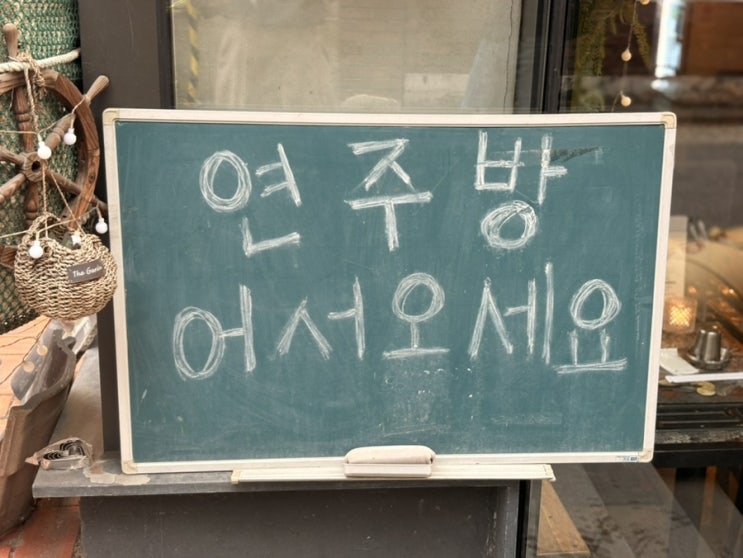 연주방
어서오세요